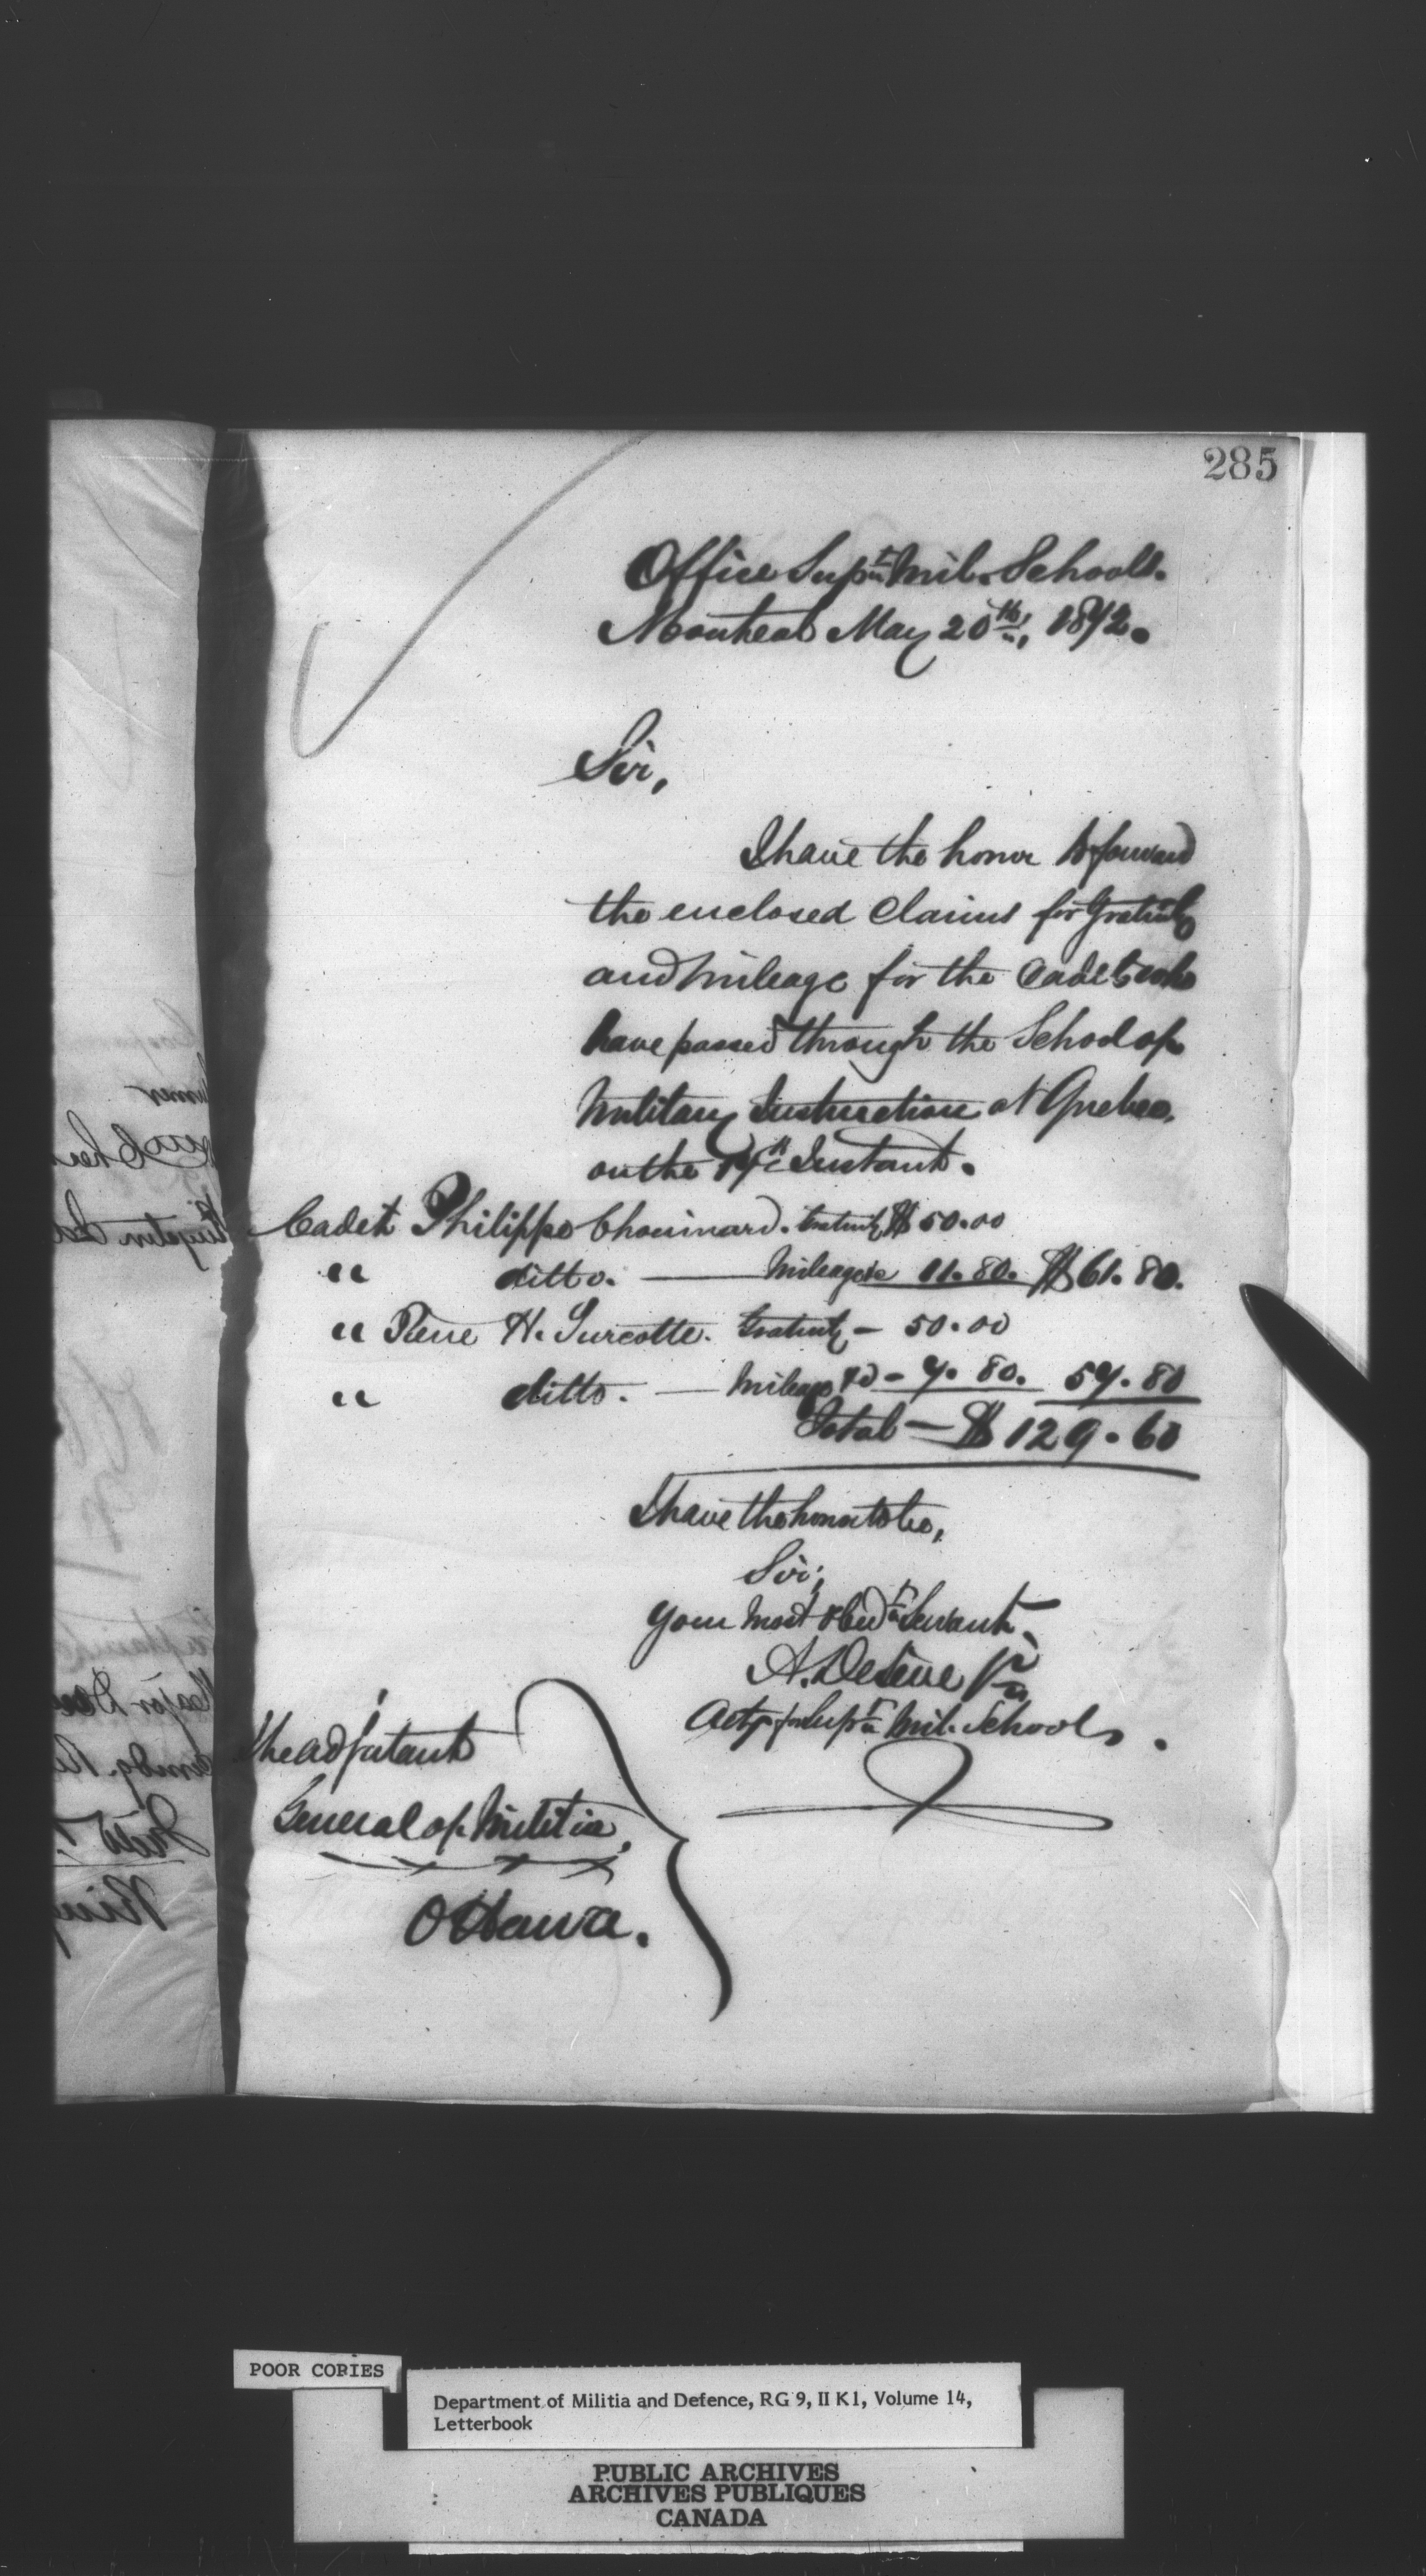 285
Office Supt. Mil. Schools.
Montreal May 20th, 1872.
Sir,
I have the honor to forward
the enclosed Claims for Gratuity
and Mileage for the Cadets who
have passed through the School of
Military Instruction at Quebec,
on the 14th Instant.
Cadet Philippe Chouinard. Gratuity $ 50.00
" ditto. — Mileage 11.80. $61.80.
" Pierre H. Turcotte. Gratuity — 50.00
" ditto. — Mileage do — 7.80. 57.80
Total — $ 129.60
I have the honor to be,
Sir,
Your most obedt. Servant,
A. DeLéne
Actg for Supt. Mil. Schools.
The Adjutant
General of Militia,
Ottawa.
POOR COPIES
Department of Militia and Defence, RG 9, II K1, Volume 14,
Letterbook
PUBLIC ARCHIVES
ARCHIVES PUBLIQUES
CANADA